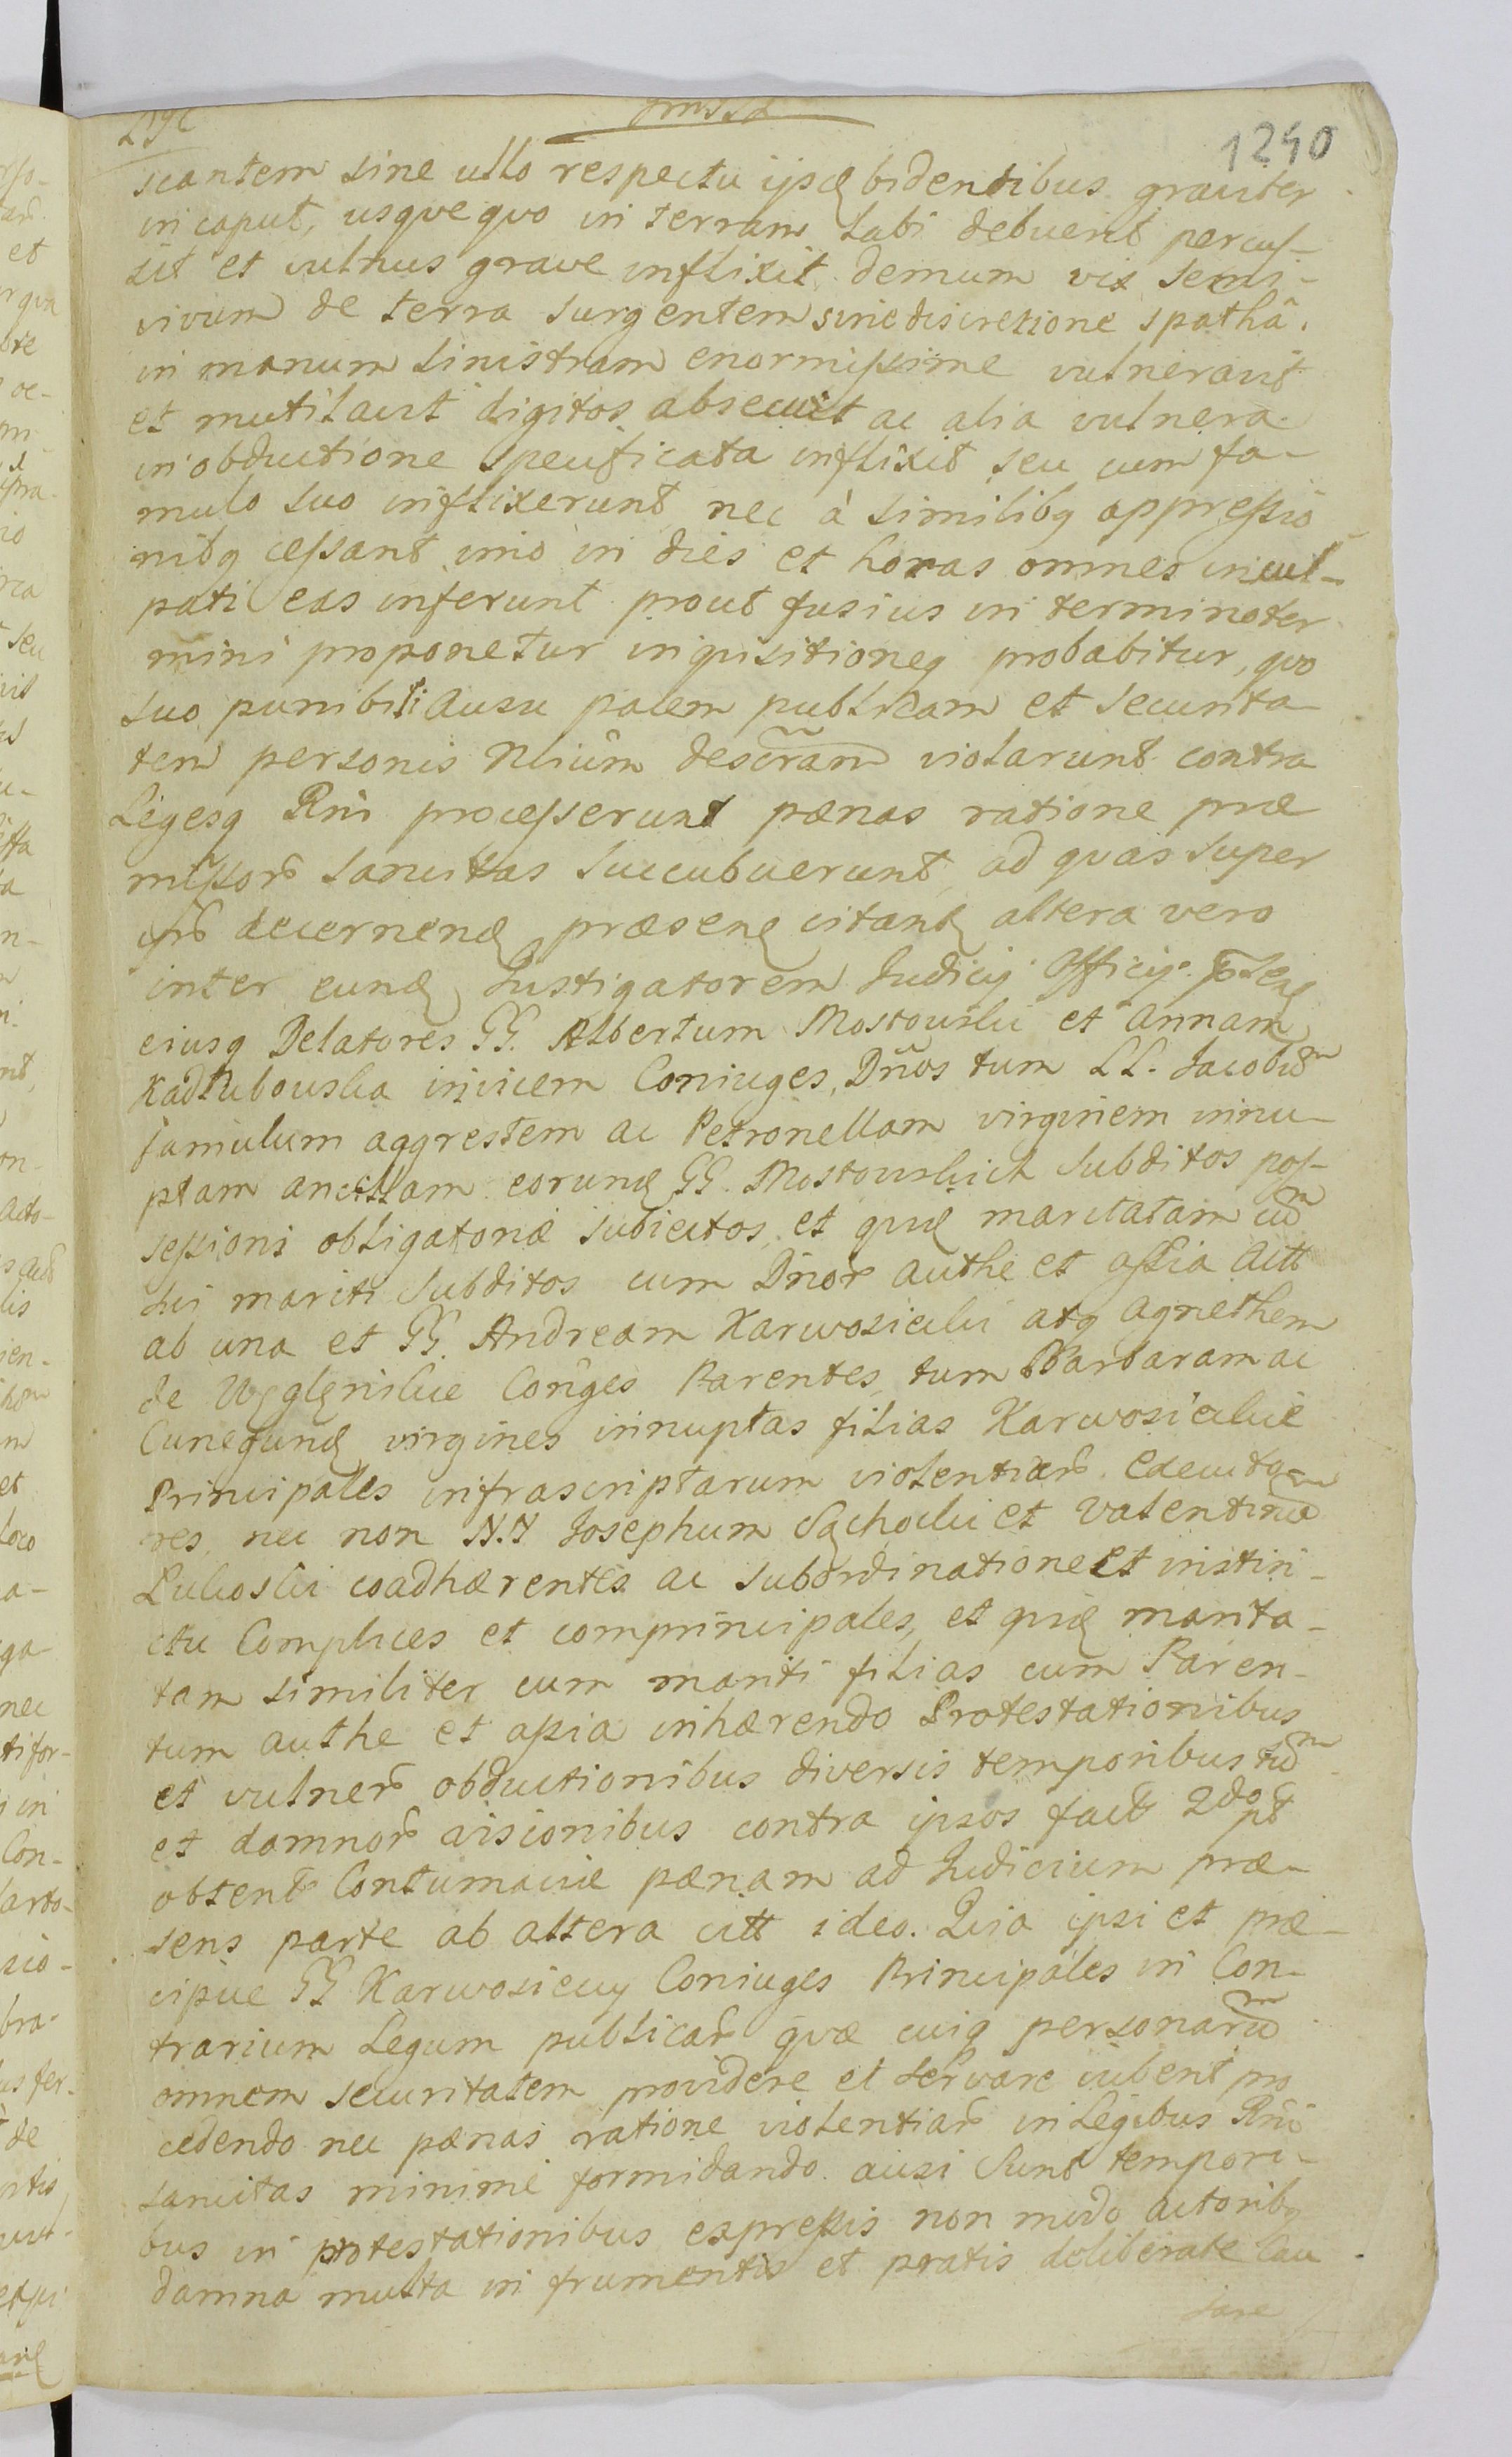 1240
scantem sine ullo respectu ipsę bidentibus grauiter
in caput, usqve quo in terram labi debuerit percus-
sit et vulnus grave inflixit demum vix semi-
vivum de terra surgentem sine discretione spathâ
in manum sinistram enormissime vulneravit
et mutilavit digitos absecuit ac alia vulnera
in obductione specificata inflixit seu cum fa-
mulo suo inflixerunt nec à similibq oppressio
nibq cessant imo in dies et horas omnes incul-
pati eas inferunt prout fusius in termino ter
mini proponetur inquisitioneq probabitur, quo
suo punibili ausu pacem publicam et securita
tem personis Nlium descram violarunt contra
Legesq Rni processerunt pænas ratione præ
missor sancitas succubuerunt ad quas super
ipsis decernend præsenq citantq altera vero
inter eund Instigatorem Judicij Officijq
eiusq Delatores GG. Albertum Mostowski et Annam
Kadłubowska invicem Coniuges, Dnos tum LL. Jacobum
famulum aggrestem ac Petronellam virginem innu-
ptam ancillam eorund GG. Mostowskich subditos pos-
sessioni obligatoriæ subiectos, et quę maritatam cum
sui mariti subditos cum Dnor authe et assia Actt
ab una et GG. Andream Karwosiecki atq Agnethem
de Węglęnskie Conges Parentes, tum Barbaram ac
Cunegund virgines innuptas filias Karwosieckie
Principales infrascriptarum violentiar executo
res, nec non N.N Josephum Sąchocki et Valentinum
Lukoski coadhærentes ac subordinatione et instin-
ctu Complices et comprincipales, et quę marita-
tam similiter cum mariti filias cum Paren-
tum authe et assia inhærendo Protestationibus
et vulner obductionibus diversis temporibus tum
et damnor visionibus contra ipsos fact 2do pt
obtent Contumaciæ pænam ad Judicium præ-
sens parte ab altera citt ideo. Quia ipsi et præ-
cipue GG Karwosieccy Coniuges Principales in Con-
trarium Legum publicar quæ cuiq personarum
omnem securitatem providere et servare iubent pro
cedendo nec pænas ratione violentiar in Legibus Rni
sancitas minime formidando ausi sunt tempori-
bus in protestationibus expressis non modo actoribq
damna multa in frumentis et pratis deliberate cau
sare